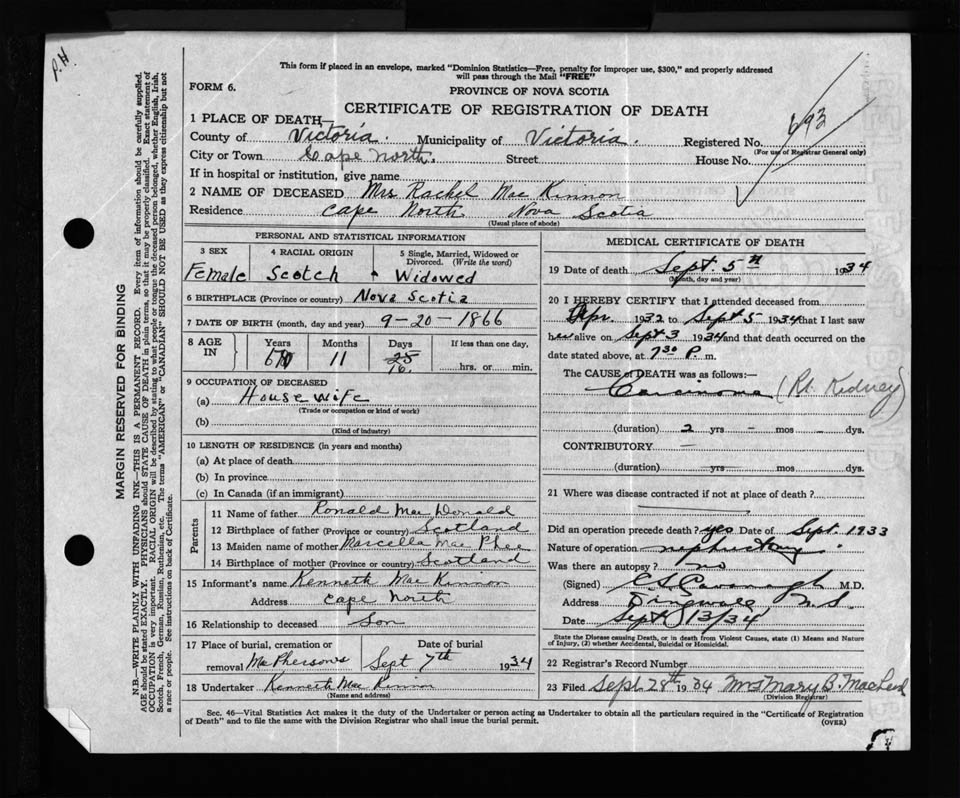 P.H.
This form if placed in an envelope, marked "Dominion Statistics—Free, penalty for improper use, $300," and properly addressed
will pass through the Mail "FREE"
FORM 6.
PROVINCE OF NOVA SCOTIA
CERTIFICATE OF REGISTRATION OF DEATH
693
1 PLACE OF DEATH—
County of Victoria. Municipality of Victoria. Registered No.
(For use of Registrar General only)
City or Town Cape North. Street House No.
If in hospital or institution, give name
2 NAME OF DECEASED Mrs Rachel Mac Kinnon
Residence Cape North Nova Scotia
(Usual place of abode)
PERSONAL AND STATISTICAL INFORMATION
3 SEX 4 RACIAL ORIGIN 5 Single, Married, Widowed or
Divorced. (Write the word)
Female Scotch Widowed
6 BIRTHPLACE (Province or country) Nova Scotia
7 DATE OF BIRTH (month, day and year) 9-20-1866
8 AGE IN Years Months Days If less than one day,
67 11 25
16. hrs. or min.
9 OCCUPATION OF DECEASED
(a) House wife
(Trade or occupation or kind of work)
(b)
(Kind of industry)
10 LENGTH OF RESIDENCE (in years and months)
(a) At place of death
(b) In province
(c) In Canada (if an immigrant)
Parents
11 Name of father Ronald Mac Donald
12 Birthplace of father (Province or country) Scotland
13 Maiden name of mother Marcella Mac Phee
14 Birthplace of mother (Province or country) Scotland
15 Informant's name Kenneth Mac Kinnon
Address Cape North
16 Relationship to deceased Son
17 Place of burial, cremation or Date of burial
removal MacPhersons Sept 7th 1934
18 Undertaker Kenneth Mac Kinnon
(Name and address)
MEDICAL CERTIFICATE OF DEATH
19 Date of death Sept. 5th 1934
(Month, day and year)
20 I HEREBY CERTIFY that I attended deceased from
Apr. 1932 to Sept 5 1934 that I last saw
her alive on Sept 3 1934 and that death occurred on the
date stated above, at 7 30 P. m.
The CAUSE of DEATH was as follows:—
Carcinoma (Rt. Kidney)
(duration) 2 yrs — mos — dys.
CONTRIBUTORY —
(duration) yrs — mos dys.
21 Where was disease contracted if not at place of death?
Did an operation precede death? yes Date of Sept. 1933
Nature of operation nephrectomy
Was there an autopsy? no
(Signed) M.D.
Address Dingwall N.S.
Date Sept 13/34
State the Disease causing Death, or in death from Violent Causes, state (1) Means and Nature
of Injury, (2) whether Accidental, Suicidal or Homicidal.
22 Registrar's Record Number
23 Filed Sept 28th 1934 Mrs Mary B. MacLeod
(Division Registrar)
Sec. 46—Vital Statistics Act makes it the duty of the Undertaker or person acting as Undertaker to obtain all the particulars required in the "Certificate of Registration
of Death" and to file the same with the Division Registrar who shall issue the burial permit.
(OVER)
MARGIN RESERVED FOR BINDING
N.B.—WRITE PLAINLY WITH UNFADING INK—THIS IS A PERMANENT RECORD. Every item of information should be carefully supplied.
AGE should be stated EXACTLY. PHYSICIANS should STATE CAUSE OF DEATH in plain terms, so that it may be properly classified. Exact statement of
OCCUPATION is very important. RACIAL ORIGIN will be described by stating to what people or tongue the deceased person belonged, whether English, Irish,
Scotch, French, German, Russian, Ruthenian, etc. The terms "AMERICAN" or "CANADIAN" SHOULD NOT BE USED as they express citizenship but not
a race or people. See instructions on back of Certificate.